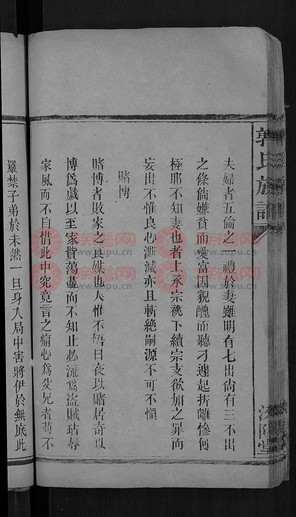 郭氏族譜
汾陽堂
夫婦者五倫之一禮於妻雖明有七出尚有三不出
之條倘嫌貧而愛富因貌醜而聽刁遽起折離慘何
極耶不知妻也者上承宗祧下續宗支欲加之罪而
妄出不惟良心漸滅亦且斬絕嗣源不可不慎
賭博
賭博者敗家之具也人惟不悟日夜以賭居奇以
博為戲以至家貲蕩盡而不知止必流為盜賊玷辱
家風而不自惜此中究竟言之痛心為父兄者苟不
嚴禁子弟於未然一旦身入局中害將伊於無底此